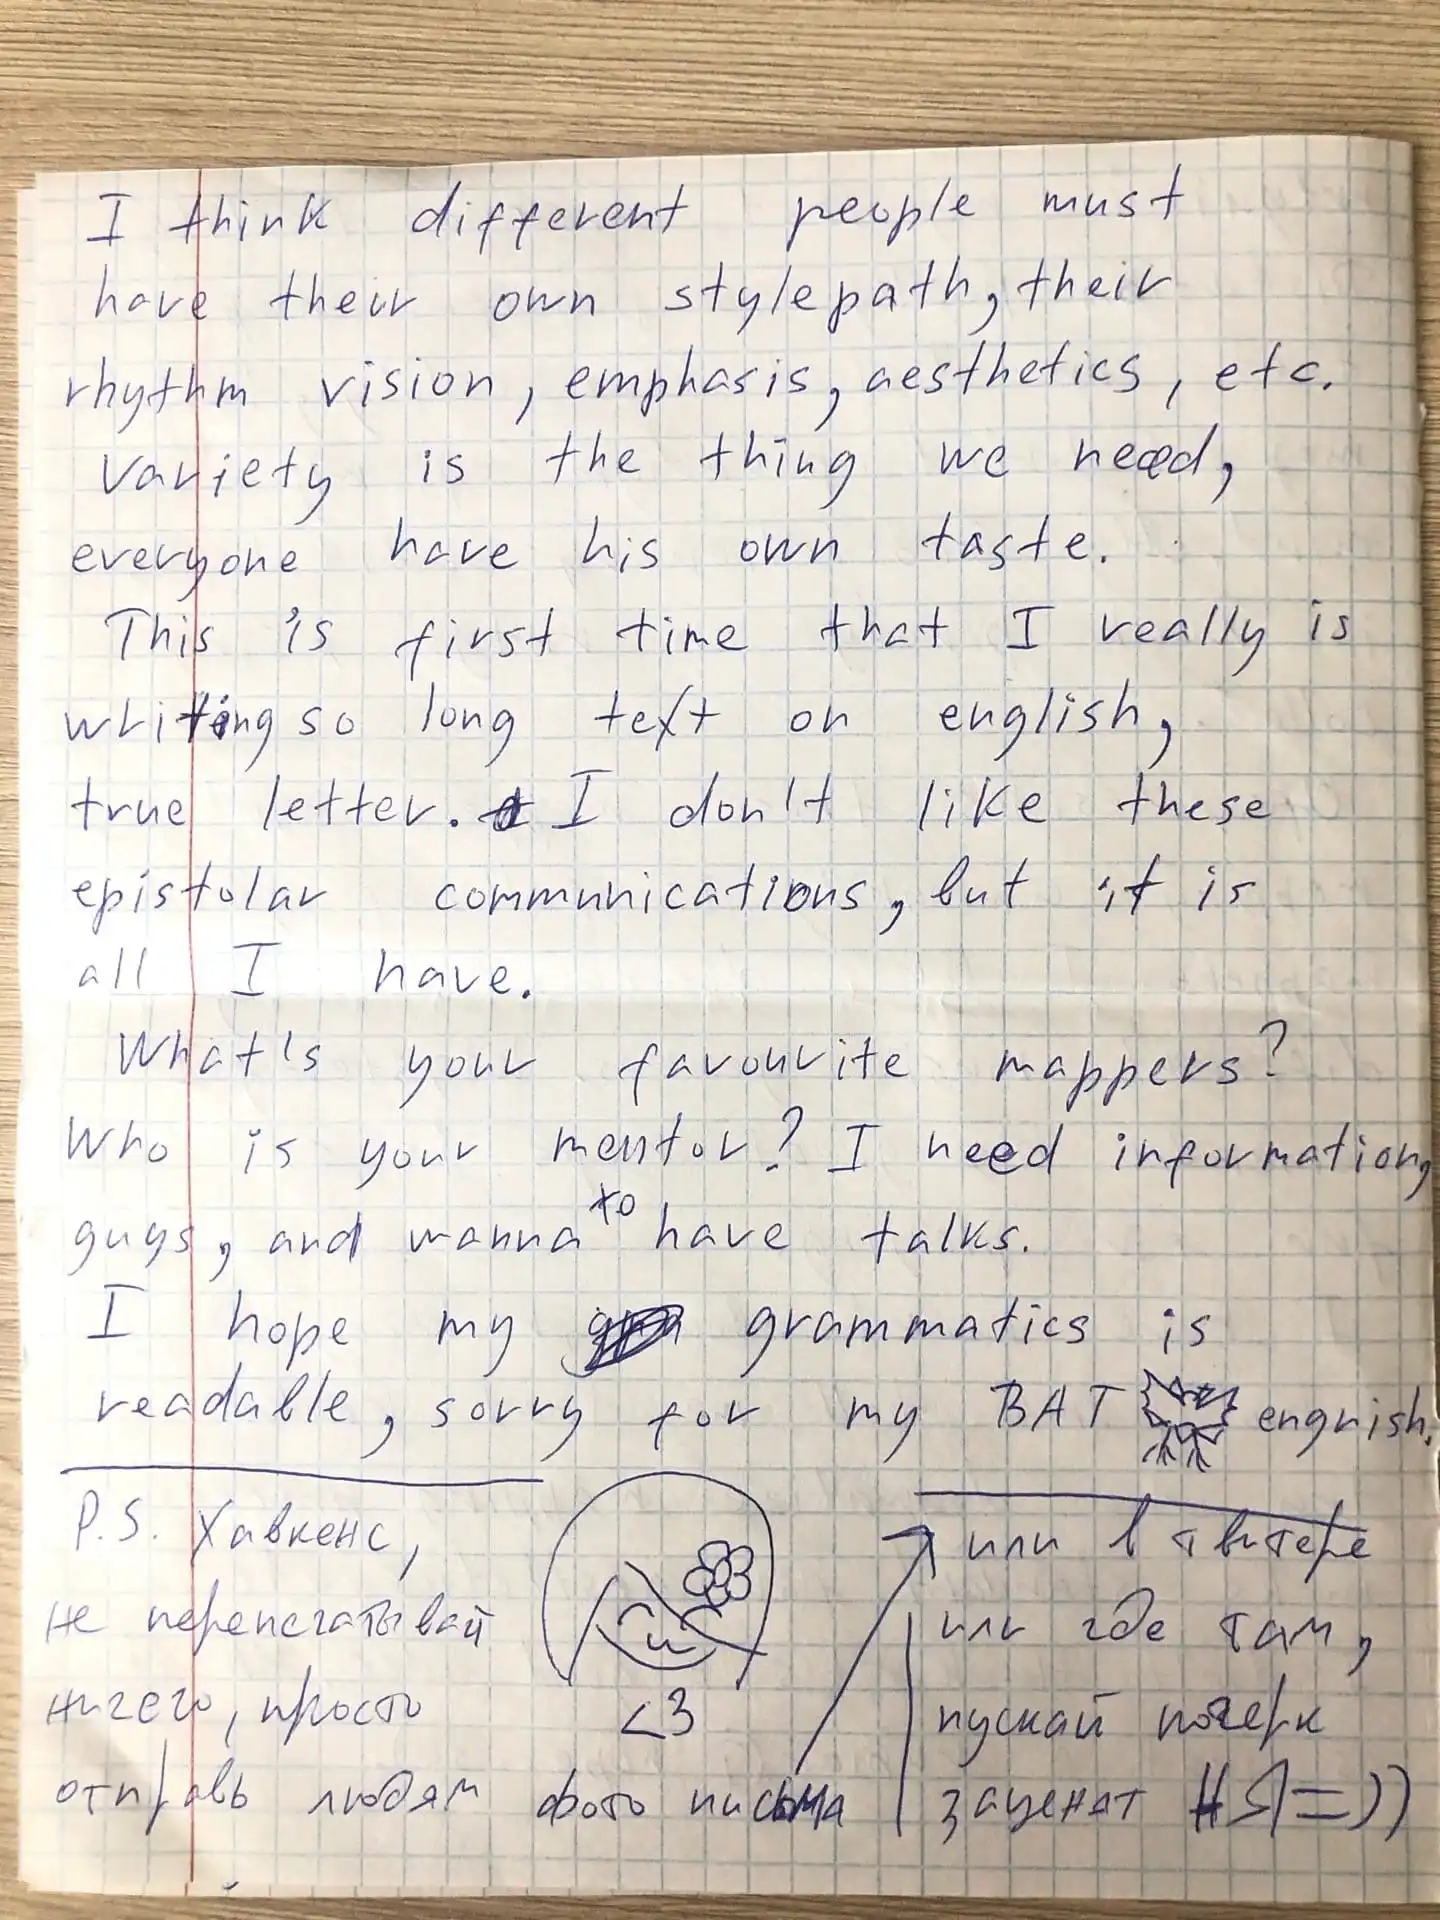 I think different people must
have their own stylepath, their
rhythm vision, emphasis, aesthetics, etc.
Variety is the thing we need,
everyone have his own taste.
This is first time that I really is
writing so long text on english,
true letter. I don't like these
epistolar communications, but it is
all I have.
What's your favourite mappers?
Who is your mentor? I need information,
guys, and wanna to have talks.
I hope my grammatics is
readable, sorry for my BAT engrish.
P.S. Хавкенс,
не перепечатывай
ничего, просто
отправь людям фото письма
<3
или в твитере
или где там,
пускай почерк
заценят =))